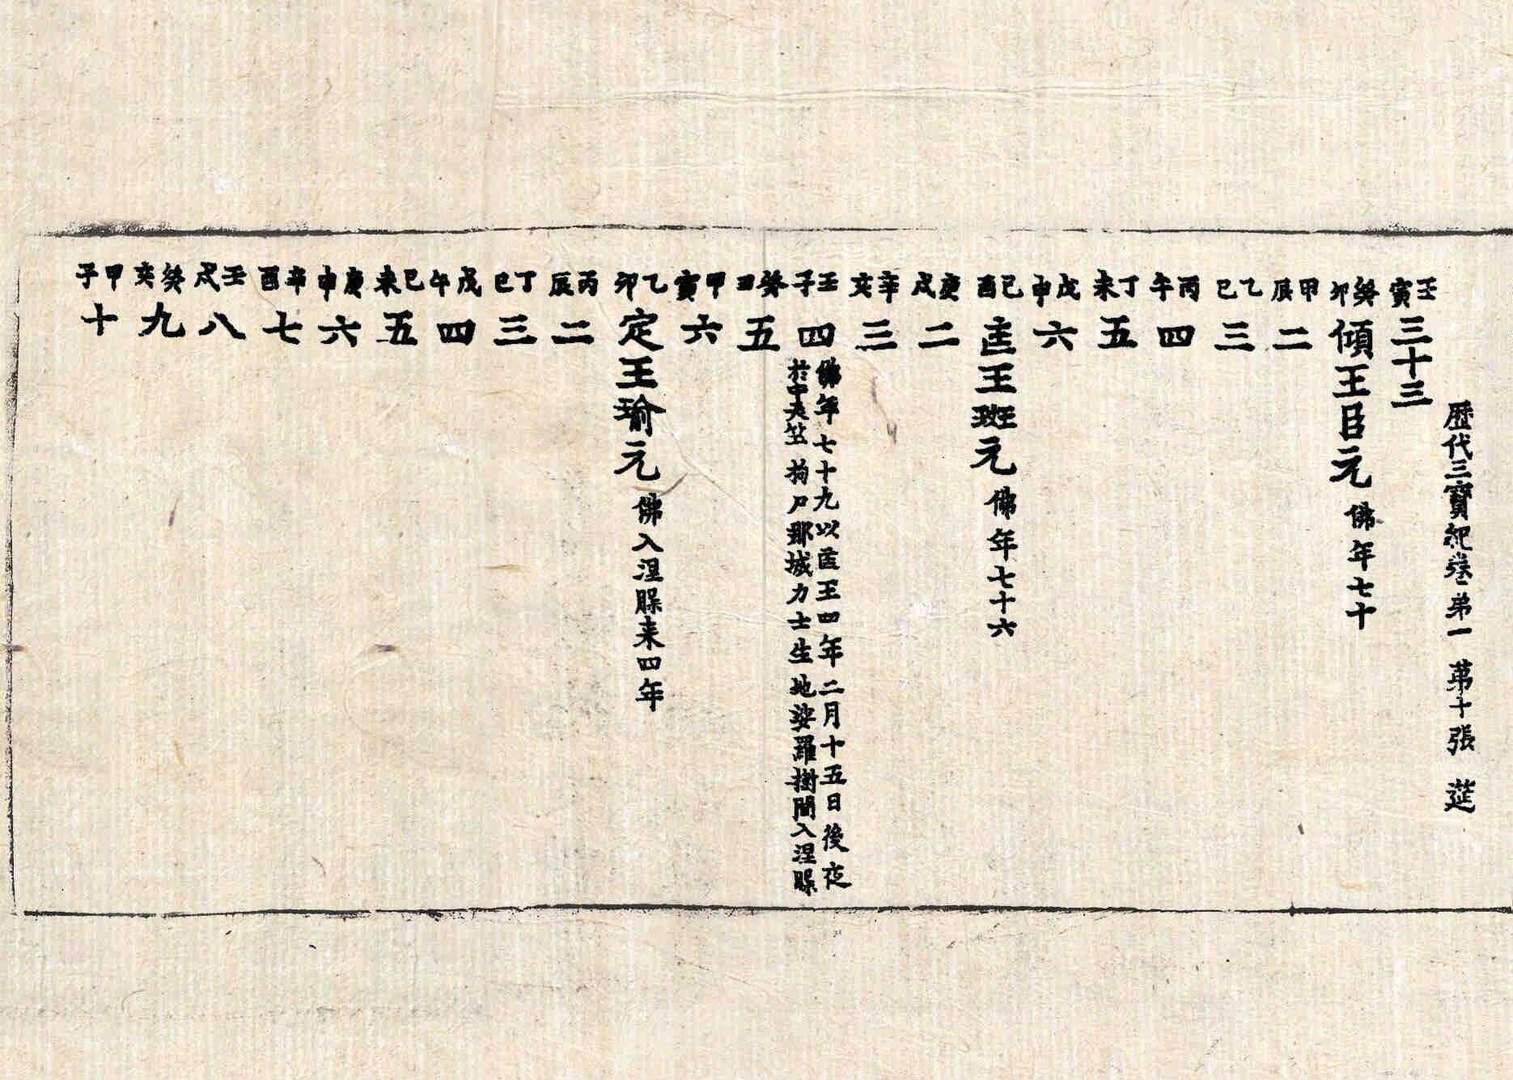 歷代三寶紀卷第一 苐十張 莚
壬寅 三十三
癸卯 傾王臣元 佛年七十
甲辰 二
乙巳 三
丙午 四
丁未 五
戊申 六
己酉 匡王班元 佛年七十六
庚戌 二
辛亥 三
壬子 四 佛年七十九以匡王四年二月十五日後夜
於中天竺拘尸那城力士生地娑羅樹間入涅槃
癸丑 五
甲寅 六
乙卯 定王瑜元 佛入涅槃来四年
丙辰 二
丁巳 三
戊午 四
己未 五
庚申 六
辛酉 七
壬戌 八
癸亥 九
甲子 十